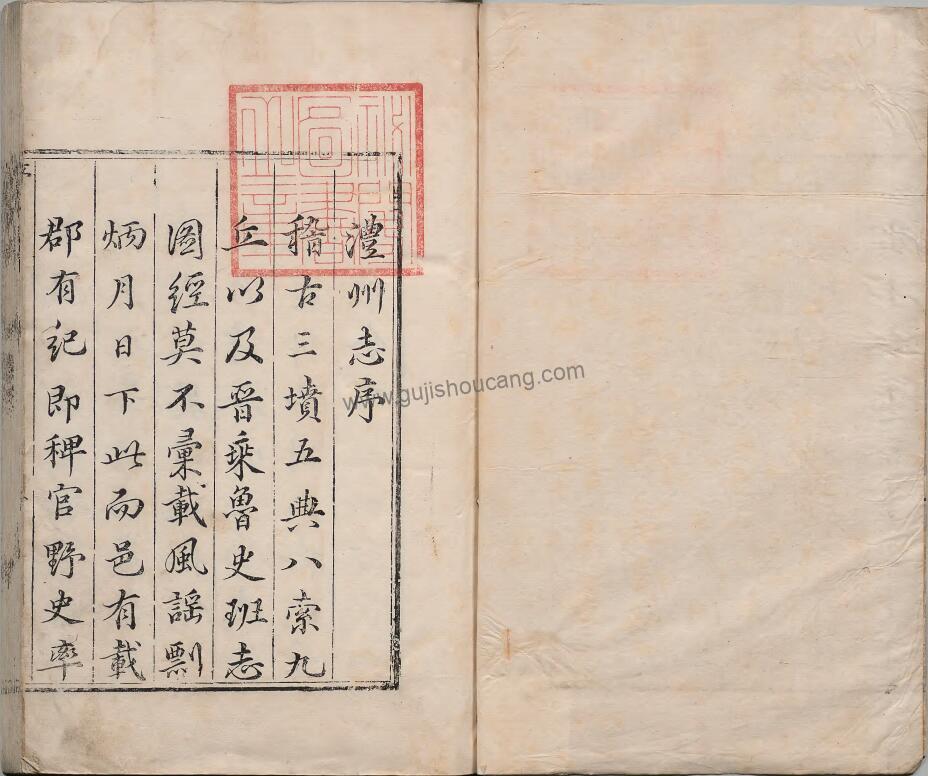 澧州志序
稽古三墳五典八索九
丘以及晉乗魯史班志
圖經莫不彙載風謡剽
炳月日下此而邑有載
郡有紀即稗官野史率
www.gujishoucang.com